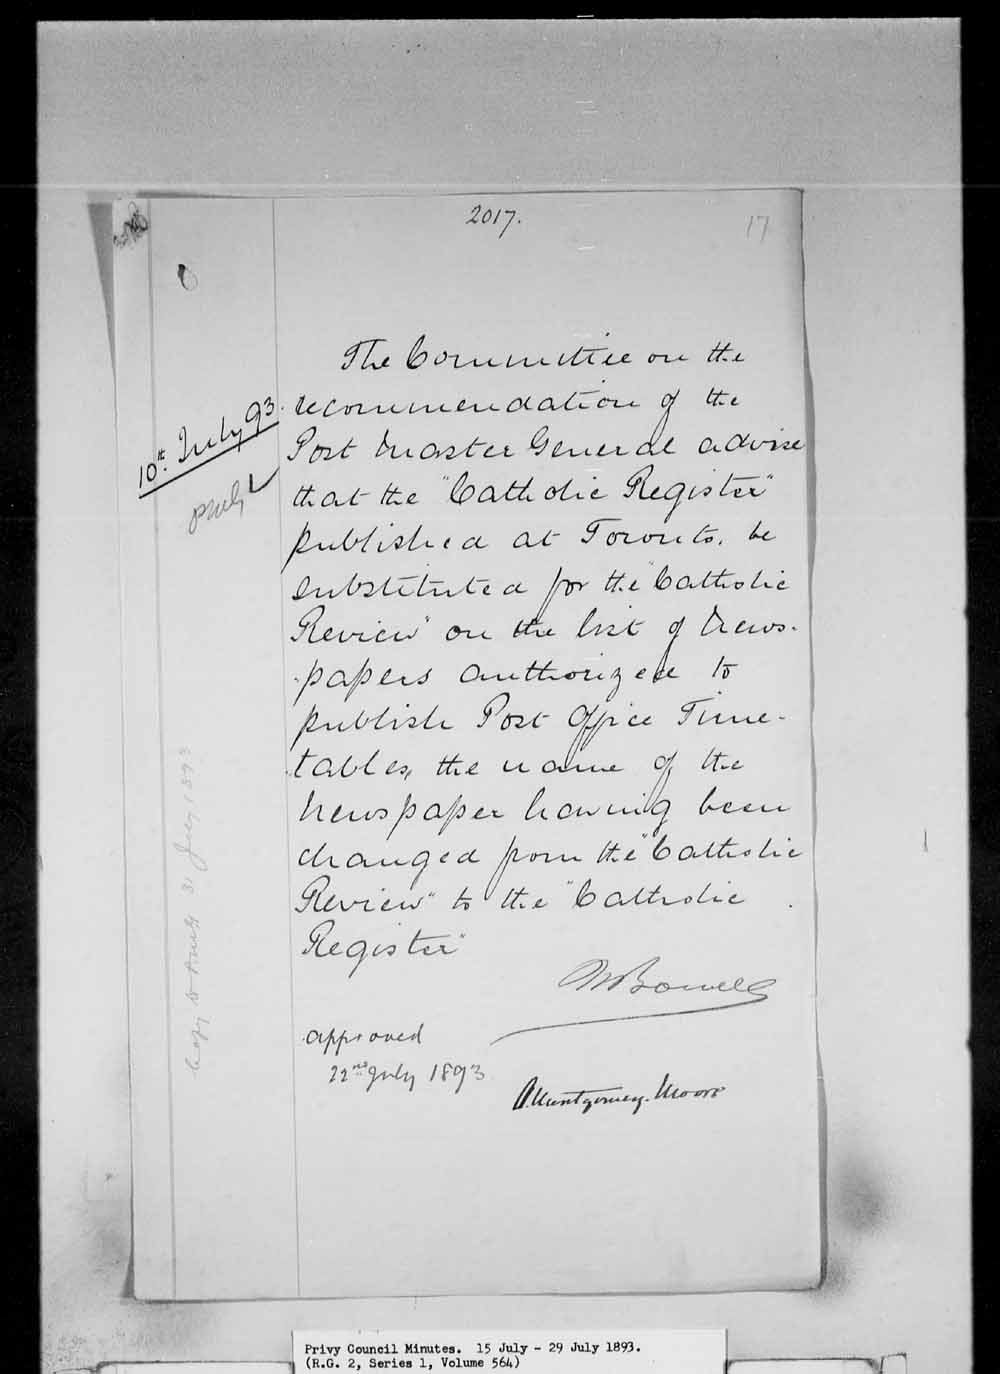 2017.
17
10th July 93.
The Committee on the
recommendation of the
Post Master General advise
that the "Catholic Register"
published at Toronto, be
substituted for the "Catholic
Review" on the list of News-
papers authorized to
publish Post Office Time-
tables, the name of the
Newspaper having been
changed from the "Catholic
Review" to the "Catholic
Register"
MBowell
approved
22nd July 1893
A. Montgomery-Moore
Copy to 31 July 1893
Privy Council Minutes. 15 July - 29 July 1893.
(R.G. 2, Series 1, Volume 564)